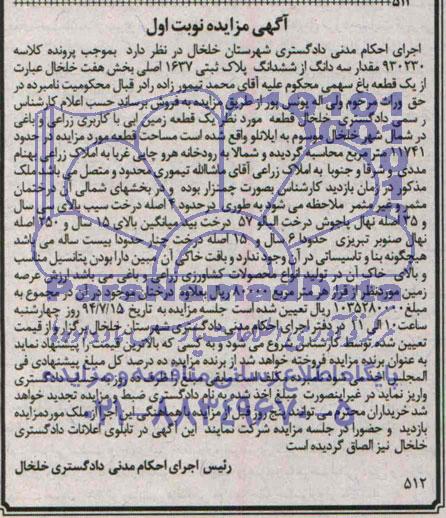 ۵۱۱
آگهی مزایده نوبت اول
اجرای احکام مدنی دادگستری شهرستان خلخال در نظر دارد بموجب پرونده کلاسه
۹۳۰۲۳۰ مقدار سه دانگ از ششدانگ پلاک ثبتی ۱۶۳۷ اصلی بخش هفت خلخال عبارت
از یک قطعه باغ سهمی محکوم علیه آقای محمد تیمورزاده رادر قبال محکومیت نامبرده در
حق وراث مرحوم ولی اله یونس پور از طریق مزایده به فروش برساند حسب اعلام کارشناس
رسمی دادگستری خلخال قطعه مورد نظر یک قطعه زمین آبی با کاربری زراعی و باغی
در شمال شهر خلخال موسوم به ایلانلو واقع شده است مساحت قطعه مورد مزایده در حدود
۱۱۷۴۱ متر مربع محاسبه گردیده و شمالا به رودخانه هرو چایی غربا به املاک زراعی بهنام
مددی و شرقا و جنوبا به املاک زراعی آقای ماشااله تیموری محدود و متصل می باشد ملک
مذکور در زمان بازدید کارشناس بصورت چمنزار بوده و در بخشهای شمالی آن درختمان
مثمر و غیر مثمر ملاحظه می شود به طوری که درحدود ۷ اصله درخت سیب بالای سی سال
و ۳۵ اصله نهال پاجوش درخت آلبالو ۵۷ درخت بید میانگین بالای ۱۵ سال و ۲۵۰ اصله
نهال صنوبر تبریزی حدود سال و ۱۵ اصله درخت چنار حدودا بیست ساله می باشد
هیچگونه بنا و تاسیساتی در آن وجود ندارد و بافت خاک آن مبین دارا بودن پتانسیل مناسب
و بالای خاک آن در تولید انواع محصولات کشاورزی زراعی و باغی می باشد ارزش عرصه
زمین موردنظر از قرار هر متر مربع ۸۰۰۰۰ ریال بعلاوه درختان موجود در آن در مجموع به
مبلغ ریال تعیین شده است جلسه مزایده به تاریخ ۹۴/۷/۱۵ روز چهارشنبه
ساعت ۱۰ الی ۱۱ در دفتر اجرای احکام مدنی دادگستری شهرستان خلخال برگزار و از قیمت
تعیین شده توسط کارشناس شروع می شود و به کسانی که بالاترین قیمت را پیشنهاد نماید
به عنوان برنده مزایده فروخته خواهد شد از برنده مزایده ده درصد کل مبلغ پیشنهادی فی
المجلس اخذ می شود برنده مکلف است مابقی مبلغ را ظرف ده روز به حساب دادگستری
واریز نماید در غیراینصورت مبلغ اخذ شده به نام دادگستری ضبط و مزایده تجدید خواهد
شد خریداران محترم می توانند پنج روز قبل از مزایده با هماهنگی این اجرا از ملک موردمزایده
بازدید و حضورا در جلسه مزایده شرکت نمایند این آگهی در تابلوی اعلانات دادگستری
خلخال نیز الصاق گردیده است
رئیس اجرای احکام مدنی دادگستری خلخال
۵۱۲
ParsNamadData
پایگاه اطلاع رسانی مناقصه و مزایده
۰۲۱-۸۸۳۴۹۶۷۰-۵